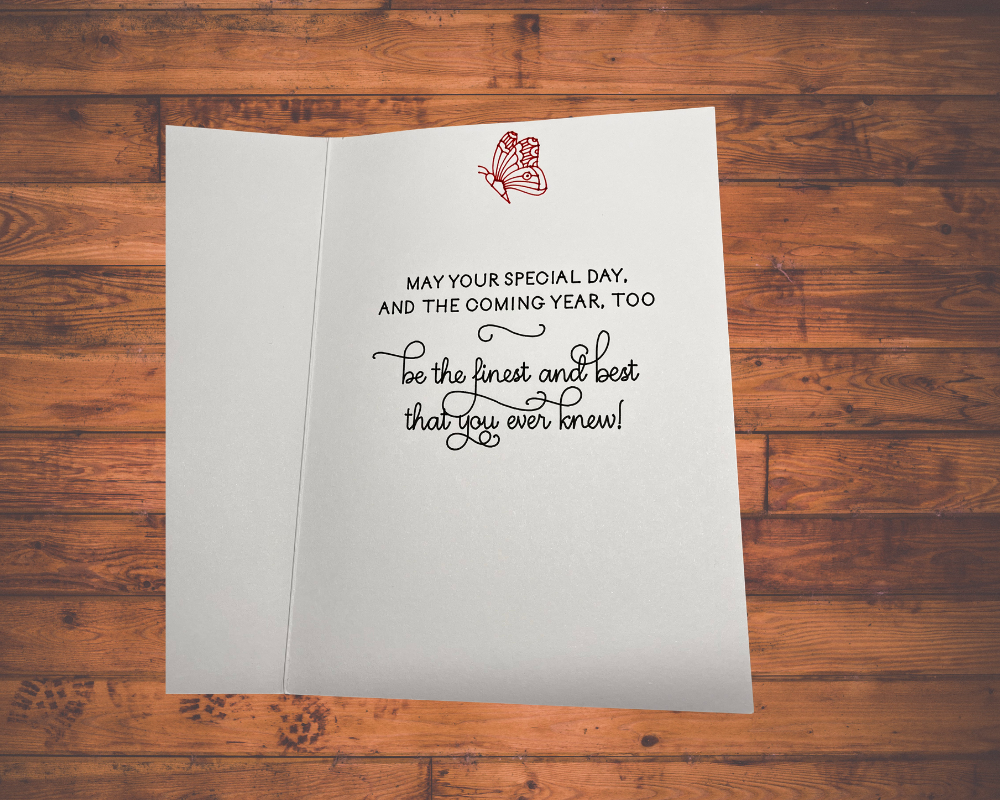 MAY YOUR SPECIAL DAY,
AND THE COMING YEAR, TOO
be the finest and best
that you ever knew!